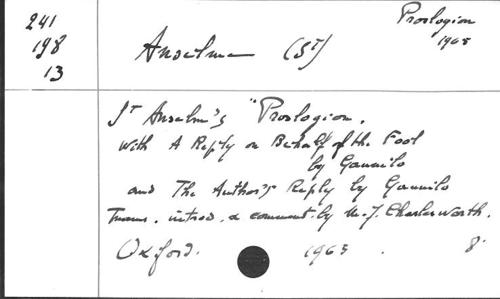 241
198
13
Anselm (St)
Proslogion
1965
St Anselm's "Proslogion.
With A Reply on Behalf of the Fool
by Gaunilo
and The Author's Reply by Gaunilo
Trans. introd. & comment. by M. J. Charlesworth.
Oxford. 1965. 8°